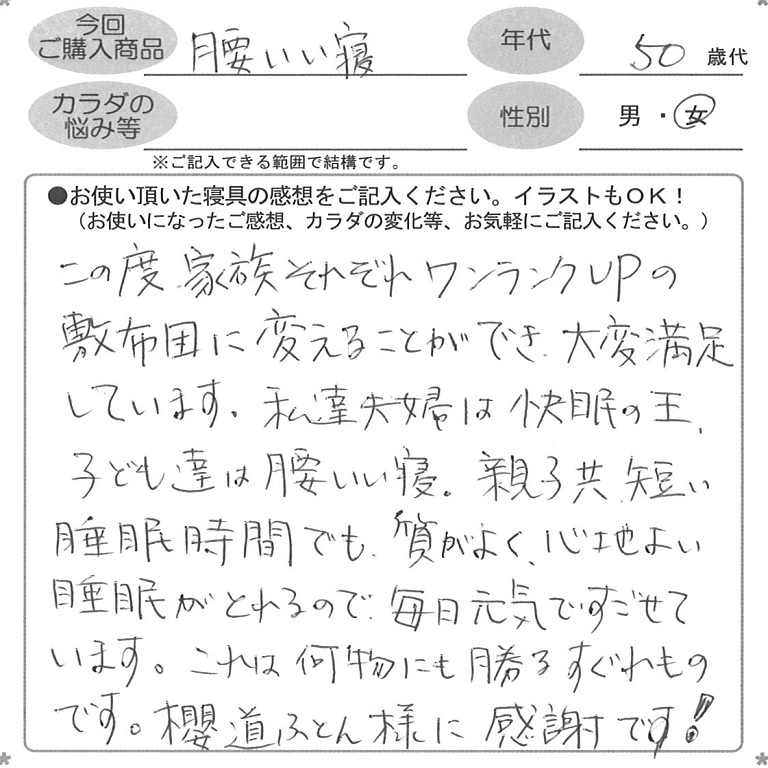 今回
ご購入商品
腰いい寝
年代
50 歳代
カラダの
悩み等
性別
男・女
※ご記入できる範囲で結構です。
●お使い頂いた寝具の感想をご記入ください。イラストもOK！
（お使いになったご感想、カラダの変化等、お気軽にご記入ください。）
この度 家族それぞれ ワンランクUPの
敷布団に変えることができ、大変満足
しています。私達夫婦は快眠の王、
子ども達は腰いい寝。親子共、短い
睡眠時間でも、質がよく、心地よい
睡眠がとれるので、毎日元気ですごせて
います。これは何物にも勝るすぐれもの
です。櫻道ふとん様に 感謝です!